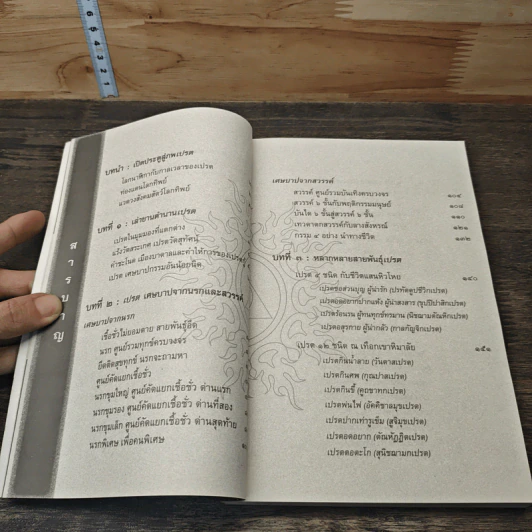 สารบาญ
บทนำ : เปิดประตูสู่ภพเปรต
โลกนาฬิกากับกาลเวลาของเปรต
ท่องแดนโลกทิพย์
แวดวงสังคมสัตว์โลกทิพย์
บทที่ ๑ : เล่าขานตำนานเปรต
เปรตในมุมมองที่แตกต่าง
แร้งวัดสระเกศ เปรตวัดสุทัศน์
คำชะโนด เมืองบาดาลและคำให้การของเปรต
เปรต เศษบาปกรรมอันน้อยนิด
บทที่ ๒ : เปรต เศษบาปจากนรกและสวรรค์
เศษบาปจากนรก
เชื้อชั่วไม่ยอมตาย สายพันธุ์อึด
นรก ศูนย์รวมทุกข์ครบวงจร
อัดอัดสุดทุกข์ นรกจะถามหา
ศูนย์คัดแยกเชื้อชั่ว
นรกขุมใหญ่ ศูนย์คัดแยกเชื้อชั่ว ด่านแรก
นรกขุมรอง ศูนย์คัดแยกเชื้อชั่ว ด่านที่สอง
นรกขุมเล็ก ศูนย์คัดแยกเชื้อชั่ว ด่านสุดท้าย
นรกพิเศษ เพื่อคนพิเศษ
เศษบาปจากสวรรค์
สวรรค์ ศูนย์รวมบันเทิงครบวงจร ๑๐๔
สวรรค์ ๖ ชั้นกับพฤติกรรมมนุษย์ ๑๐๘
บันได ๖ ขั้นสู่สวรรค์ ๖ ชั้น ๑๑๐
เทวดาตกสวรรค์กับลางสังหรณ์ ๑๒๑
กรรม ๔ อย่าง นำทางชีวิต ๑๓๒
บทที่ ๓ : หลากหลายสายพันธุ์เปรต
เปรต ๔ ชนิด กับชีวิตแสนหิวโหย ๑๔๐
เปรตขอส่วนบุญ ผู้น่ารัก (ปรทัตตูปชีวิกเปรต)
เปรตอดอยากปากแห้ง ผู้น่าสงสาร (ขุปปิปาสิกเปรต)
เปรตร้อนรน ผู้ทนทุกข์ทรมาน (นิชฌามตัณหิกเปรต)
เปรตอสุรกาย ผู้น่ากลัว (กาลกัญจิกเปรต)
เปรต ๑๒ ชนิด ณ เทือกเขาหิมาลัย ๑๕๑
เปรตกินน้ำลาย (วันตาสเปรต)
เปรตกินศพ (กุณปาสเปรต)
เปรตกินขี้ (คูถขาทกเปรต)
เปรตพ่นไฟ (อัคคิชาลมุขเปรต)
เปรตปากเท่ารูเข็ม (สูจิมุขเปรต)
เปรตอดอยาก (ตัณหัฏฏิตเปรต)
เปรตตอตะโก (สุนิชฌามกเปรต)